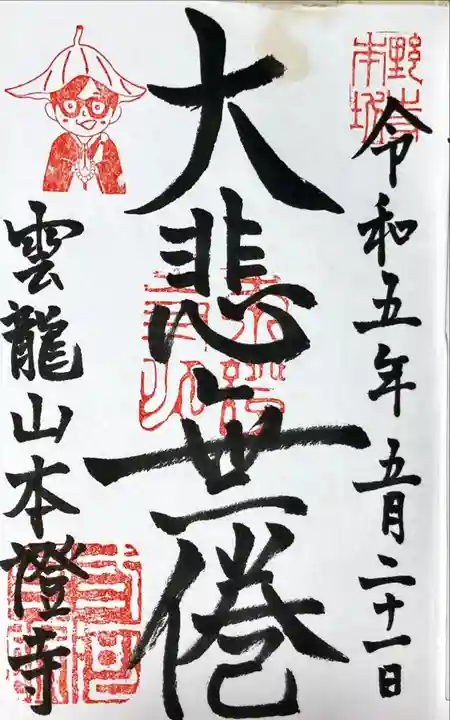 令和五年五月二十一日
大悲無倦
雲龍山本證寺